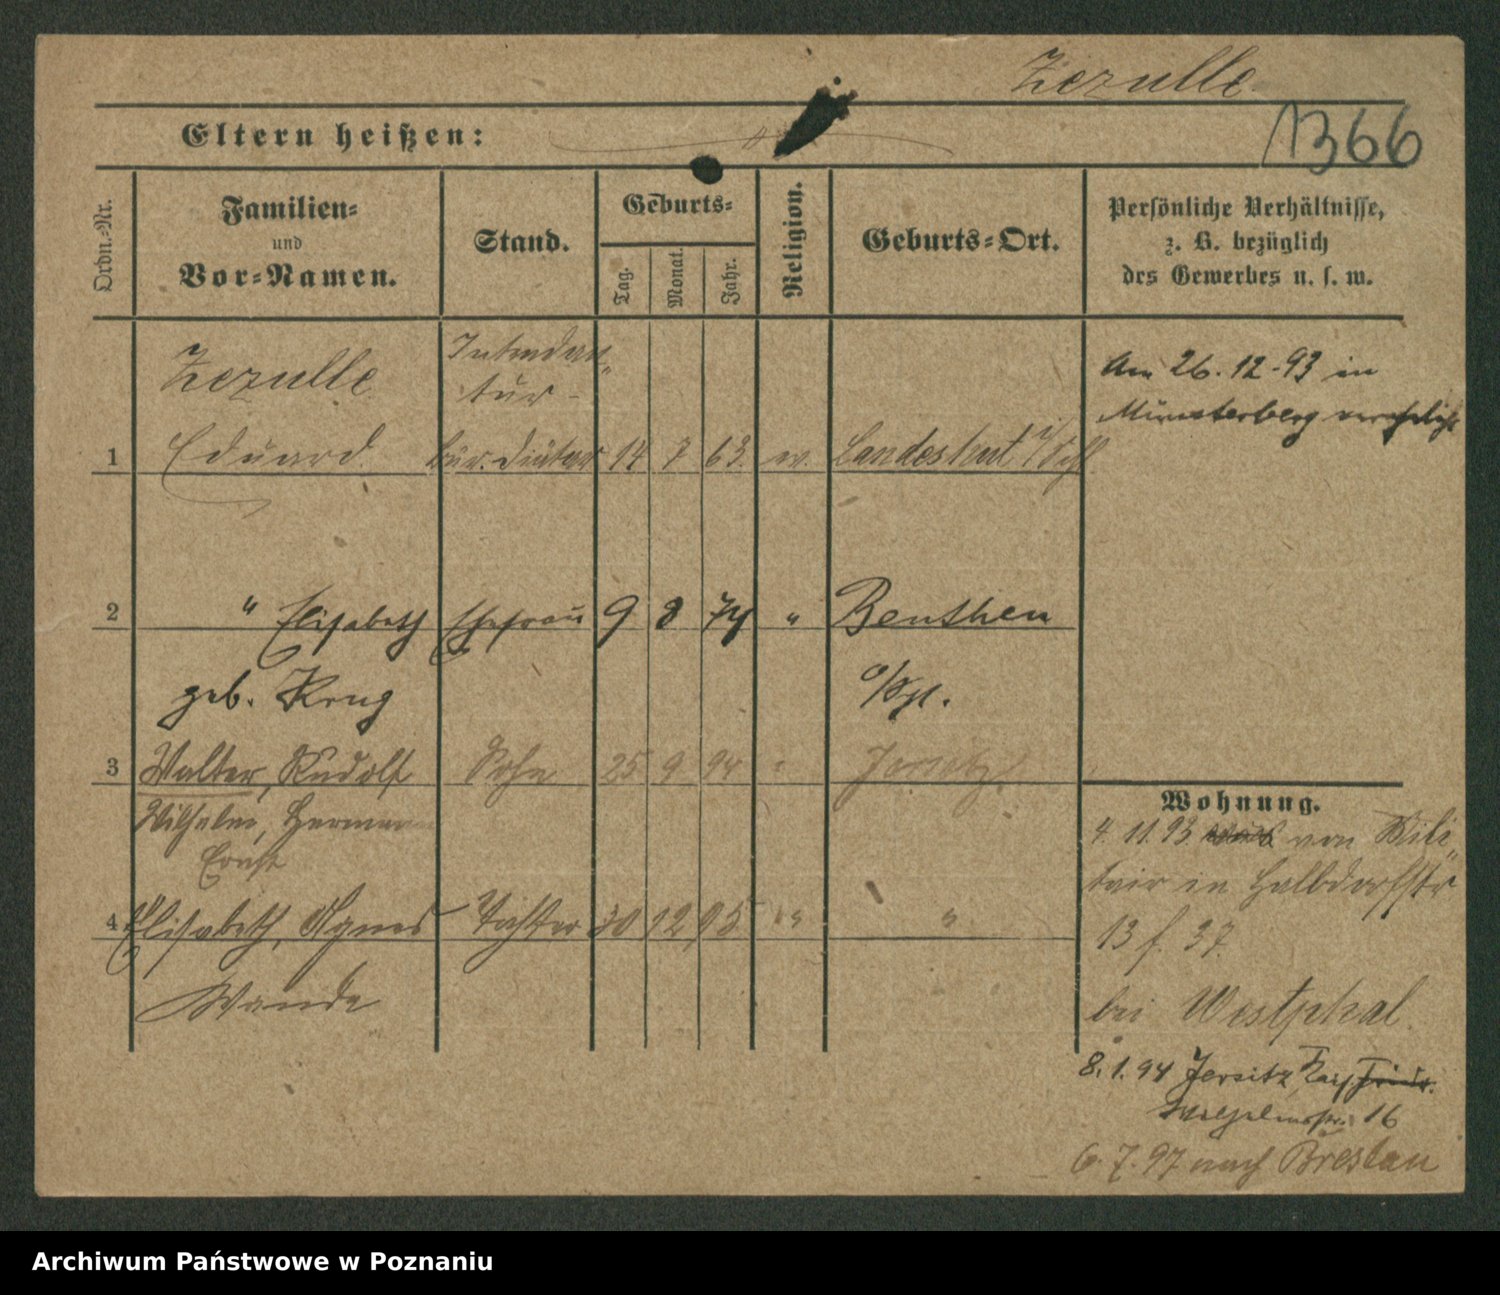 Zezulle
Eltern heißen:
1366
Ordn.-Nr.
Familien-
und
Vor-Namen.
Stand.
Geburts-
Tag.
Monat.
Jahr.
Religion.
Geburts-Ort.
Persönliche Verhältnisse,
z. B. bezüglich
des Gewerbes u. s. w.
Zezulle
Intendan
tur-
1 Eduard Bür. Diätar 14 7 63 ev. Landeshut i/Schl
Am 26.12.93 in
Münsterberg verehelicht
2 " Elisabeth Ehefrau 9 8 74 " Beuthen
geb. Krug o/Schl.
3 Walter, Rudolf Sohn 25 9 94 " Jersitz
Wilhelm, Hermann
Ernst
4 Elisabeth, Agnes Tochter 30 12 95 " "
Wanda
Wohnung.
4. 11. 93 von Mili
tair in Halbdorfstr
13 f. 37.
bei Westphal.
8.1.94 Jersitz, Kais. Friedr.
Wilhelmstr. 16
6.7.97 nach Breslau
Archiwum Państwowe w Poznaniu